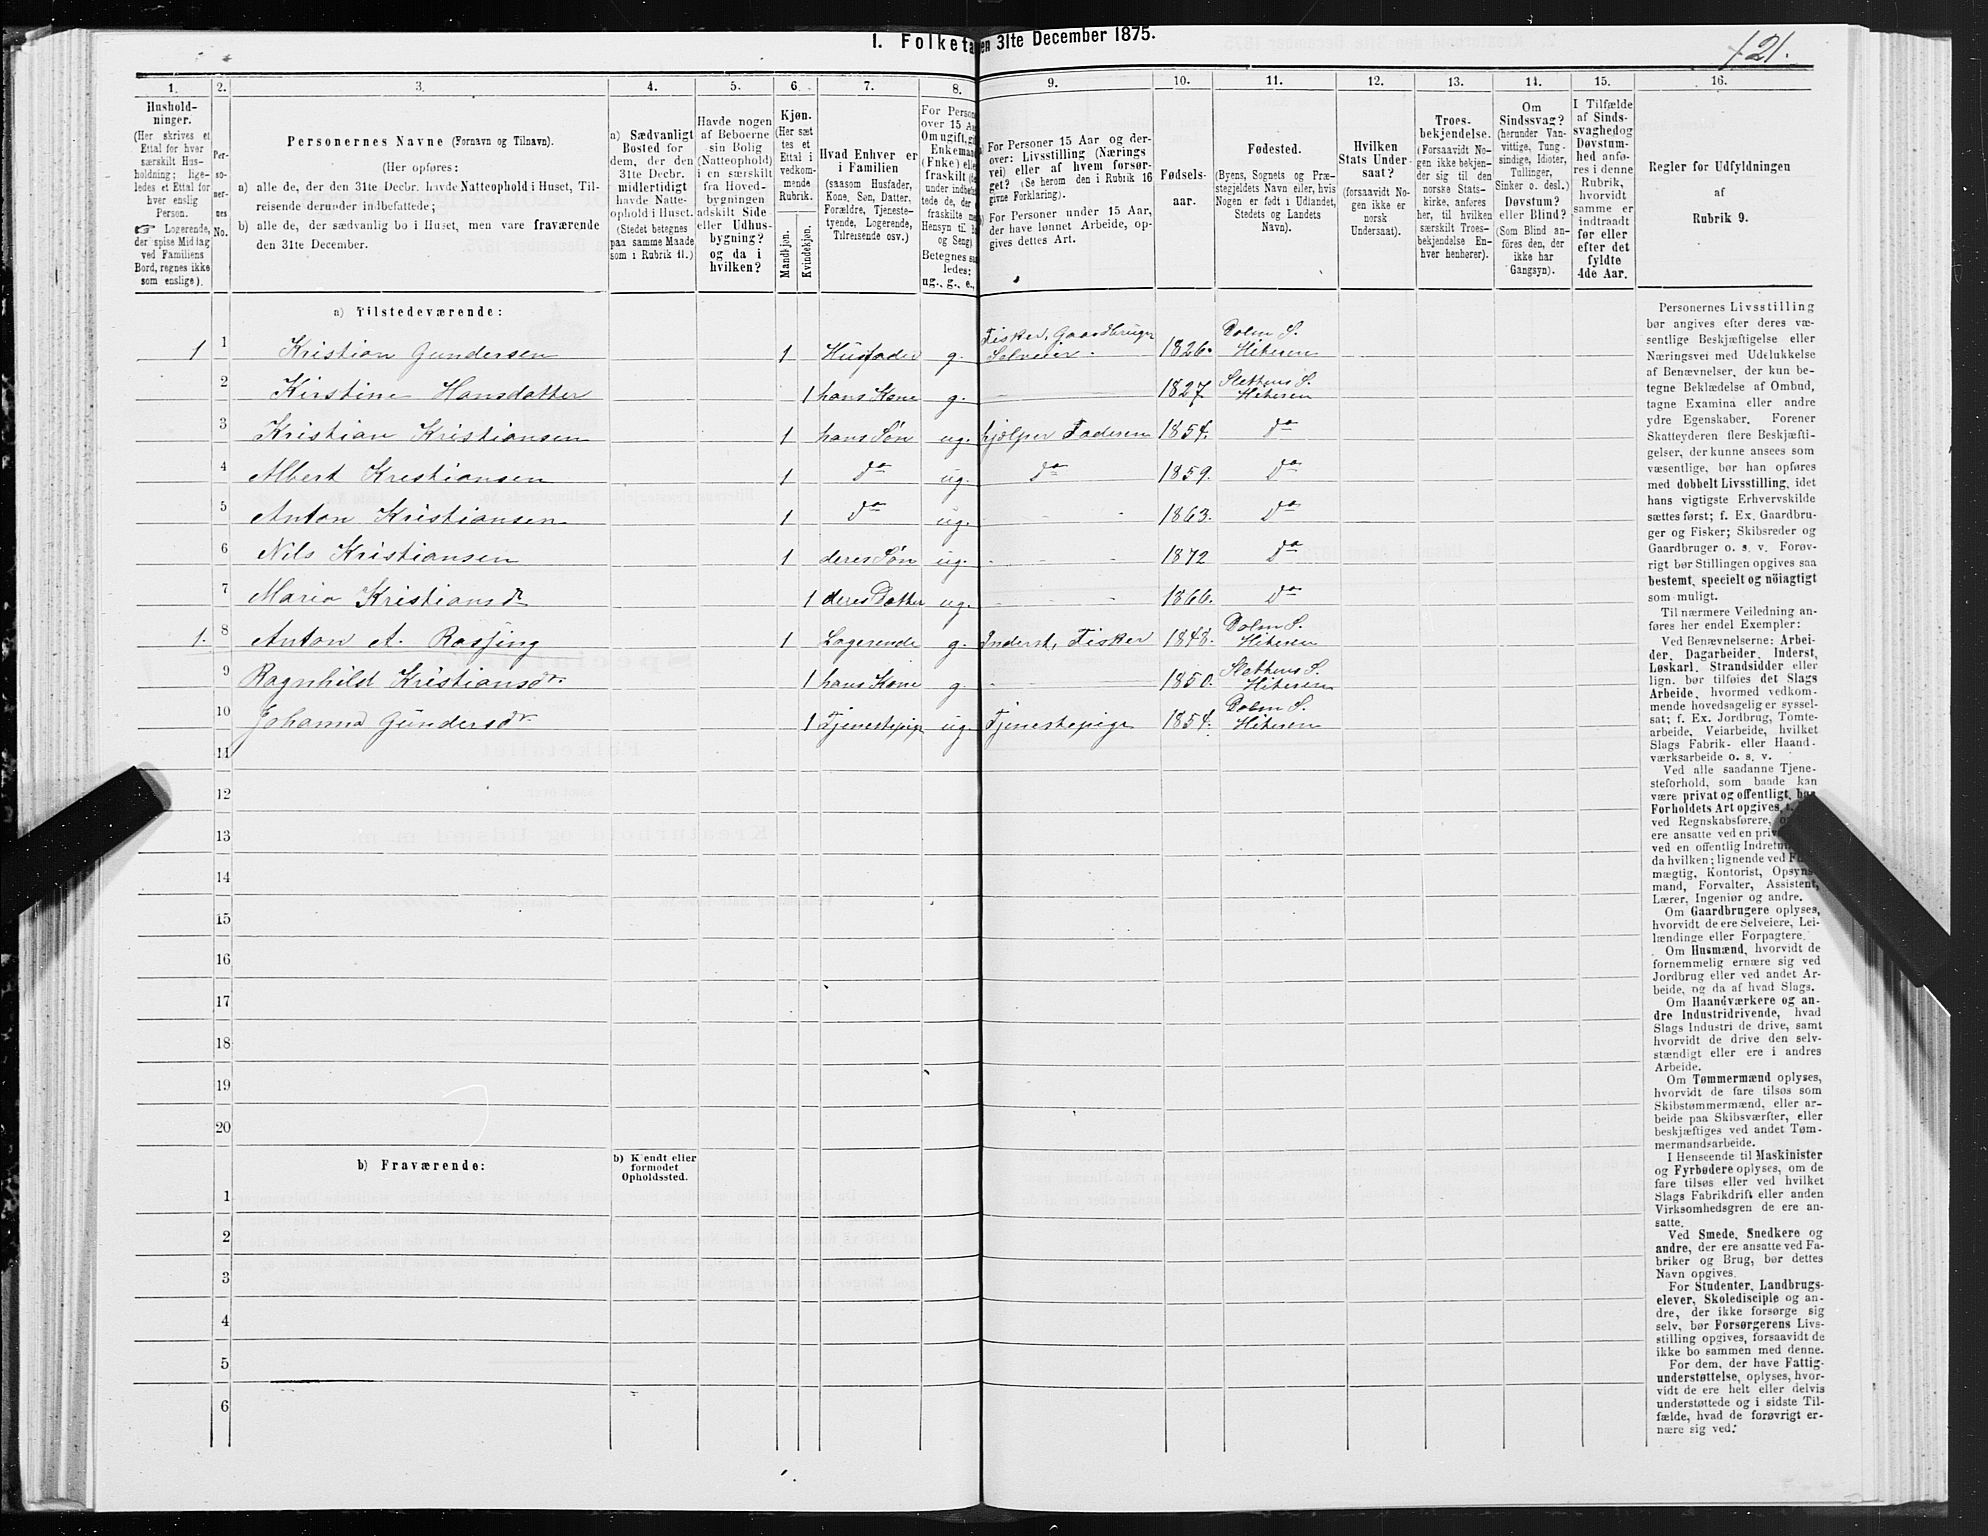 1. Folketa en 31te December 1875.
121.
1. 2. 3. 4. 5. 6. 7. 8. 9. 10. 11. 12. 13. 14. 15. 16.
Hushold-
ninger.
(Her skrives et
Ettal for hver
særskilt Hus-
holdning; lige-
ledes et Ettal for
hver enslig
Person.
☞ Logerende,
der spise Middag
ved Familiens
Bord, regnes ikke
som enslige).
Per-
so-
ner-
nes
No.
Personernes Navne (Fornavn og Tilnavn).
(Her opføres:
a) alle de, der den 31te Decbr. havde Natteophold i Huset, Til-
reisende derunder indbefattede;
b) alle de, der sædvanlig bo i Huset, men vare fraværende
den 31te December.
a) Sædvanligt
Bosted for
dem, der den
31te Decbr.
midlertidigt
havde Natte-
ophold i Huset.
(Stedet betegnes
paa samme Maade
som i Rubrik 11.)
Havde nogen
af Beboerne
sin Bolig
(Natteophold)
i en særskilt
fra Hoved-
bygningen
adskilt Side
eller Udhus-
bygning?
og da i
hvilken?
Kjøn.
(Her sæt
tes et
Ettal i
vedkom-
mende
Rubrik.
Mandkjøn.
Kvindekjøn.
Hvad Enhver er
i Familien
(saasom Husfader,
Kone, Søn, Datter,
Forældre, Tjeneste-
tyende, Logerende,
Tilreisende osv.)
For Person
over 15 Aa
Om ugift, gif
Enkeman
(Enke) elle
fraskilt
under indbef
tede de, der
fraskilte
Hensyn til B
og Seng)
Betegnes saa
ledes:
ug., g., e.,
For Personer 15 Aar og der-
over: Livsstilling (Nærings
vei) eller af hvem forsør-
get? (Se herom den i Rubrik 16
givne Forklaring).
For Personer under 15 Aar,
der have lønnet Arbeide, op-
gives dettes Art.
Fødsels-
aar.
Fødested.
(Byens, Sognets og Præ-
stegjeldets Navn eller, hvis
Nogen er født i Udlandet,
Stedets og Landets
Navn).
Hvilken
Stats Under-
saat?
(forsaavidt No-
gen ikke er
norsk
Undersaat).
Troes-
bekjendelse.
(Forsaavidt No-
gen ikke bekjen-
der sig til den
norske Stats-
kirke, anføres
her, til hvilken
særskilt Troes-
bekjendelse En-
hver henhører).
Om
Sindssvag?
(herunder Van-
vittige, Tung-
sindige, Idioter,
Tullinger,
Sinker o. desl.)
Døvstum?
eller Blind?
(Som Blind an-
føres den, der
ikke har
Gangsyn).
I Tilfælde
af Sinds-
svaghed og
Døvstum-
hed anfø-
res i denne
Rubrik,
hvorvidt
samme er
indtraadt
før eller
efter det
fyldte
4de Aar.
Regler for Udfyldningen
af
Rubrik 9.
a) Tilstedeværende:
1 1 Kristian Gundersen 1 Husfader g. Fisker, Gaardbruger Selveier. 1826. Dolm S. Hiteren
2 Kirstine Hansdatter 1 hans Kone g. 1827 Slethens S. Hiteren
3 Kristian Kristiansen 1 hans Søn ug. hjælper Faderen 1854. do
4 Albert Krestiansen 1 do ug. do 1859. do
5 Anton Kristiansen 1 do ug. 1863. do
6 Nils Kristiansen 1 deres Søn ug. 1872 do
7 Maria Kristiansd 1 deres Datter ug. 1866. do
1. 8 Anton A. Rossing 1 Logerende g. Inderst, Fisker 1848. Dolm S. Hiteren
9 Ragnhild Kristiansdr. 1 hans Kone g 1850. Slethens S. Hiteren
10 Johanna Gundersdr. 1 Tjenestepige ug. Tjenestepige 1854. Dolm S. Hiteren
11
12
13
14
15
16
17
18
19
20
b) Fraværende:
b) Kjendt eller
formodet
Opholdssted.
1
2
3
4
5
6
Personernes Livsstilling
bør angives efter deres væ-
sentlige Beskjæftigelse eller
Næringsvei med Udelukkelse
af Benævnelser, der kun be-
tegne Beklædelse af Ombud,
tagne Examina eller andre
ydre Egenskaber. Forener
Skatteyderen flere Beskjæfti-
gelser, der kunne ansees som
væsentlige, bør han opføres
med dobbelt Livsstilling, idet
hans vigtigste Erhvervskilde
sættes først; f. Ex. Gaardbru-
ger og Fisker; Skibsreder og
Gaardbruger o. s. v. Forøv-
rigt bør Stillingen opgives saa
bestemt, specielt og nöiagtigt
som muligt.
Til nærmere Veiledning an-
føres her endel Exempler:
Ved Benævnelserne: Arbei-
der, Dagarbeider, Inderst,
Løskarl, Strandsidder eller
lign. bør tilføies det Slags
Arbeide, hvormed vedkom-
mende hovedsagelig er syssel-
sat; f. Ex. Jordbrug, Tomte-
arbeide, Veiarbeide, hvilket
Slags Fabrik- eller Haand-
værksarbeide o. s. v.
Ved alle saadanne Tjene-
steforhold, som baade kan
være privat og offentligt, bør
Forholdets Art opgives,
ved Regnskabsførere,
ere ansatte ved en
ved en offentlig
da hvilken; lignende ved
mægtig, Kontorist, Opsyns-
mand, Forvalter, Assistent,
Lærer, Ingeniør og andre.
Om Gaardbrugere oplyses,
hvorvidt de ere Selveiere, Lei-
lændinge eller Forpagtere.
Om Husmænd, hvorvidt de
fornemmelig ernære sig ved
Jordbrug eller ved andet Ar-
beide, og da af hvad Slags.
Om Haandværkere og an-
dre Industridrivende, hvad
Slags Industri de drive, samt
hvorvidt de drive den selv-
stændigt eller ere i andres
Arbeide.
Om Tømmermænd oplyses,
hvorvidt de fare tilsøs som
Skibstømmermænd, eller ar-
beide paa Skibsværfter, eller
beskjæftiges ved andet Tøm-
mermandsarbeide.
I Henseende til Maskinister
og Fyrbødere oplyses, om de
fare tilsøs eller ved hvilket
Slags Fabrikdrift eller anden
Virksomhedsgren de ere an-
satte.
Ved Smede, Snedkere og
andre, der ere ansatte ved Fa-
briker og Brug, bør dettes
Navn opgives.
For Studenter, Landbrugs-
elever, Skoledisciple og an-
dre, der ikke forsørge sig
selv, bør Forsørgerens Livs-
stilling opgives, forsaavidt de
ikke bo sammen med denne.
For dem, der have Fattig-
understøttelse, oplyses, hvor-
vidt de ere helt eller delvis
understøttede og i sidste Til-
fælde, hvad de forøvrigt er-
nære sig ved.